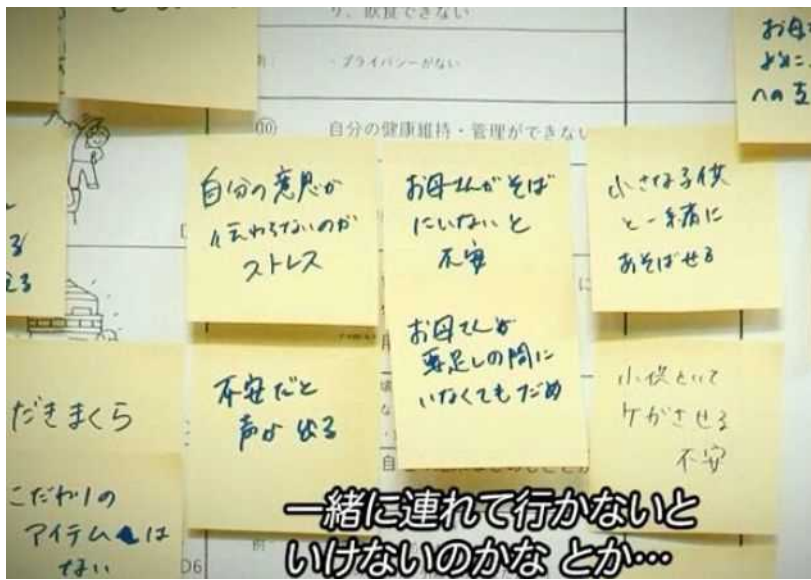 り、飲食できない
・プライバシーがない
自分の健康維持・管理ができない
自分の意思が
伝わらないのが
ストレス
お母さんがそば
にいないと
不安
小さな子供
と一緒に
あそばせる
不安だと
声が出る
お母さんが
用足しの間に
いなくてもだめ
小供といて
ケガさせる
不安
だきまくら
こだわりの
アイテムは
ない
D6
一緒に連れて行かないと
いけないのかな とか…